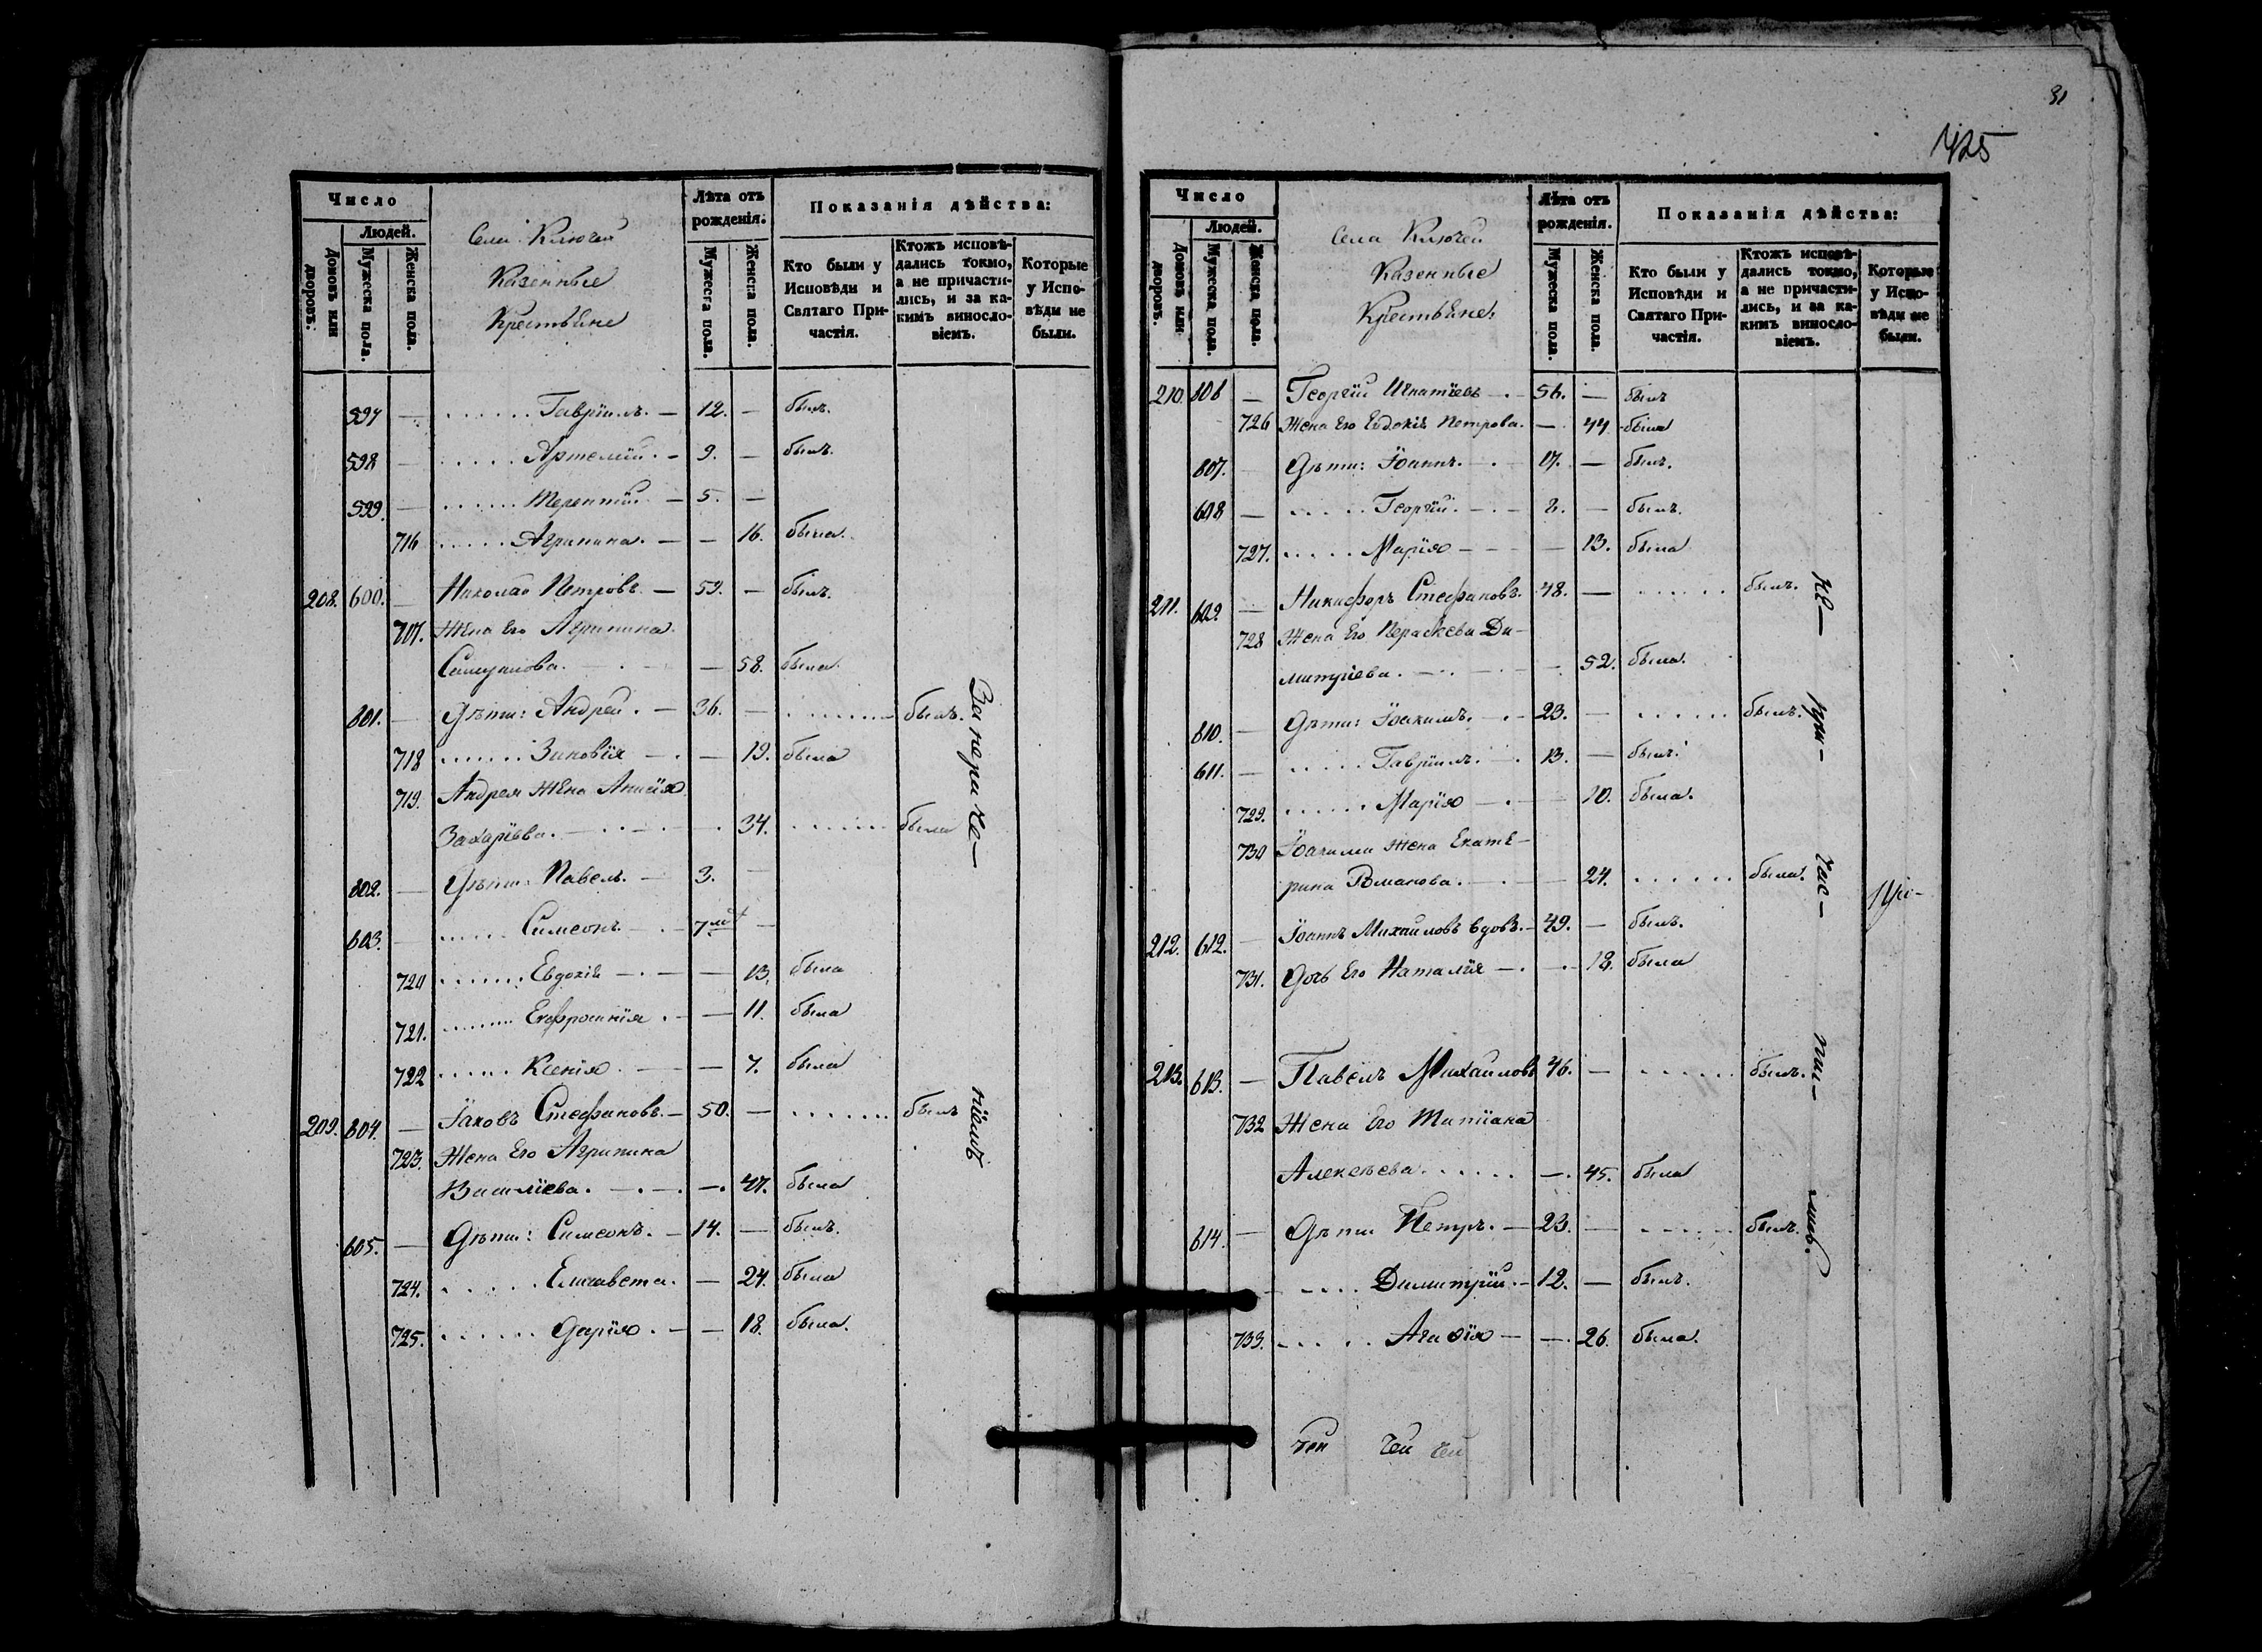 31
425
Число
Людей.
Домовъ или дворовъ.
Мужеска пола.
Женска пола.
Села Ключей
Казенные
Крестьяне
Лѣта отъ
рожденія.
Мужеска пола.
Женска пола.
Показанія дѣйства:
Кто были у
Исповѣди и
Святаго При-
частія.
Ктожъ исповѣ-
дались токмо,
а не причасти-
лись, и за ка-
кимъ винosло-
віемъ.
Которые
у Испо-
вѣди не
были.
597 — ...... Гавріилъ. — 12. — былъ.
598 — ..... Артемій. — 9. — былъ.
599. — ...... Терентій — 5. —
716 ..... Агрипина. — — 16. была.
208. 600. — Николай Петровъ — 59. — былъ.
717. Жена Его Агрипина
— 58. была.
601. — Дѣти: Андрей. — 36. — ........ былъ.
718 ...... Зиновія — . — 19. была
719. Андрея Жена Анисія
Захаріева. — 34. ....... была
602. — Дѣти: Павелъ. — 3. —
603. — ..... Симеонъ — 7 —
720 ....... Евдокія — . — — 13. была
721. ....... Евфросинія . — — 11. была
722 ...... Ксенія . — — 7. была
209. 604. — Іаковъ Стефановъ. — 50. — ....... былъ
723. Жена Его Агрипина
Василіева. — . — . — . 47. была
605. — Дѣти: Симеонъ. — 14. — былъ.
724. ..... Елисавета. — 24. была
725. ...... Дарія . — — 18. была.
За нераче—
ніемъ
Число
Людей.
Домовъ или дворовъ.
Мужеска пола.
Женска пола.
Села Ключей
Казенные
Крестьяне.
Лѣта отъ
рожденія.
Мужеска пола.
Женска пола.
Показанія дѣйства:
Кто были у
Исповѣди и
Святаго При-
частія.
Ктожъ исповѣ-
дались токмо,
а не причасти-
лись, и за ка-
кимъ виносло-
віемъ.
Которые
у Испо-
вѣди не
были.
210. 606 — Георгій Игнатіевъ — . — 56. — былъ
726 Жена Его Евдокія Петрова. — 44 была
607. — Дѣти: Іоаннъ. — . — 17. — былъ.
608 — ..... Георгій. — . — 8. — былъ.
727. ..... Марія — — — — 13. была
211. 609. — Никифоръ Стефановъ. 48. — ...... былъ.
728 Жена Его Параскева Ди—
митріева. — . — 52. была.
610. — Дѣти: Іоакимъ. — . — 23. — ...... былъ.
611. — ..... Гавріилъ. — . 13. — былъ.
729. ...... Марія — . — — 10. была.
730 Іоакима жена Екате—
рина Романова. — . — — 24. ...... была.
212. 612. — Іоаннъ Михаиловъ вдовъ. — 49. — былъ.
731. Дочь Его Наталія — . — . 18. была
213. 613. — Павелъ Михаиловъ 46. — ...... былъ.
732 Жена Его Татіана
Алексѣева ...... — . 45. была
614. — Дѣти Петръ. — 23. — ...... былъ.
— .... Димитрій. — 12. — былъ.
733. ..... Агафія — — . 26. была.
не—
при—
час—
тил—
чей чей чей